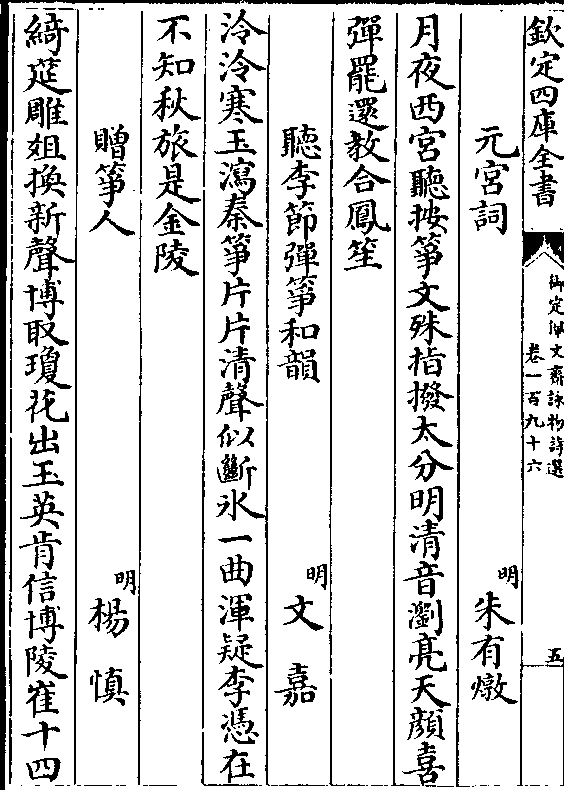 欽定四庫全書
御定佩文齋詠物詩選
卷一百九十六
五
元宮詞
明
朱有燉
月夜西宮聽按箏文殊指撥太分明清音瀏亮天顔喜
彈罷還教合鳳笙
聽李節彈箏和韻
明
文嘉
泠泠寒玉瀉秦箏片片清聲似斷冰一曲渾疑李憑在
不知秋旅是金陵
贈箏人
明
楊慎
綺筵雕俎換新聲博取瓊花出玉英肯信博陵崔十四